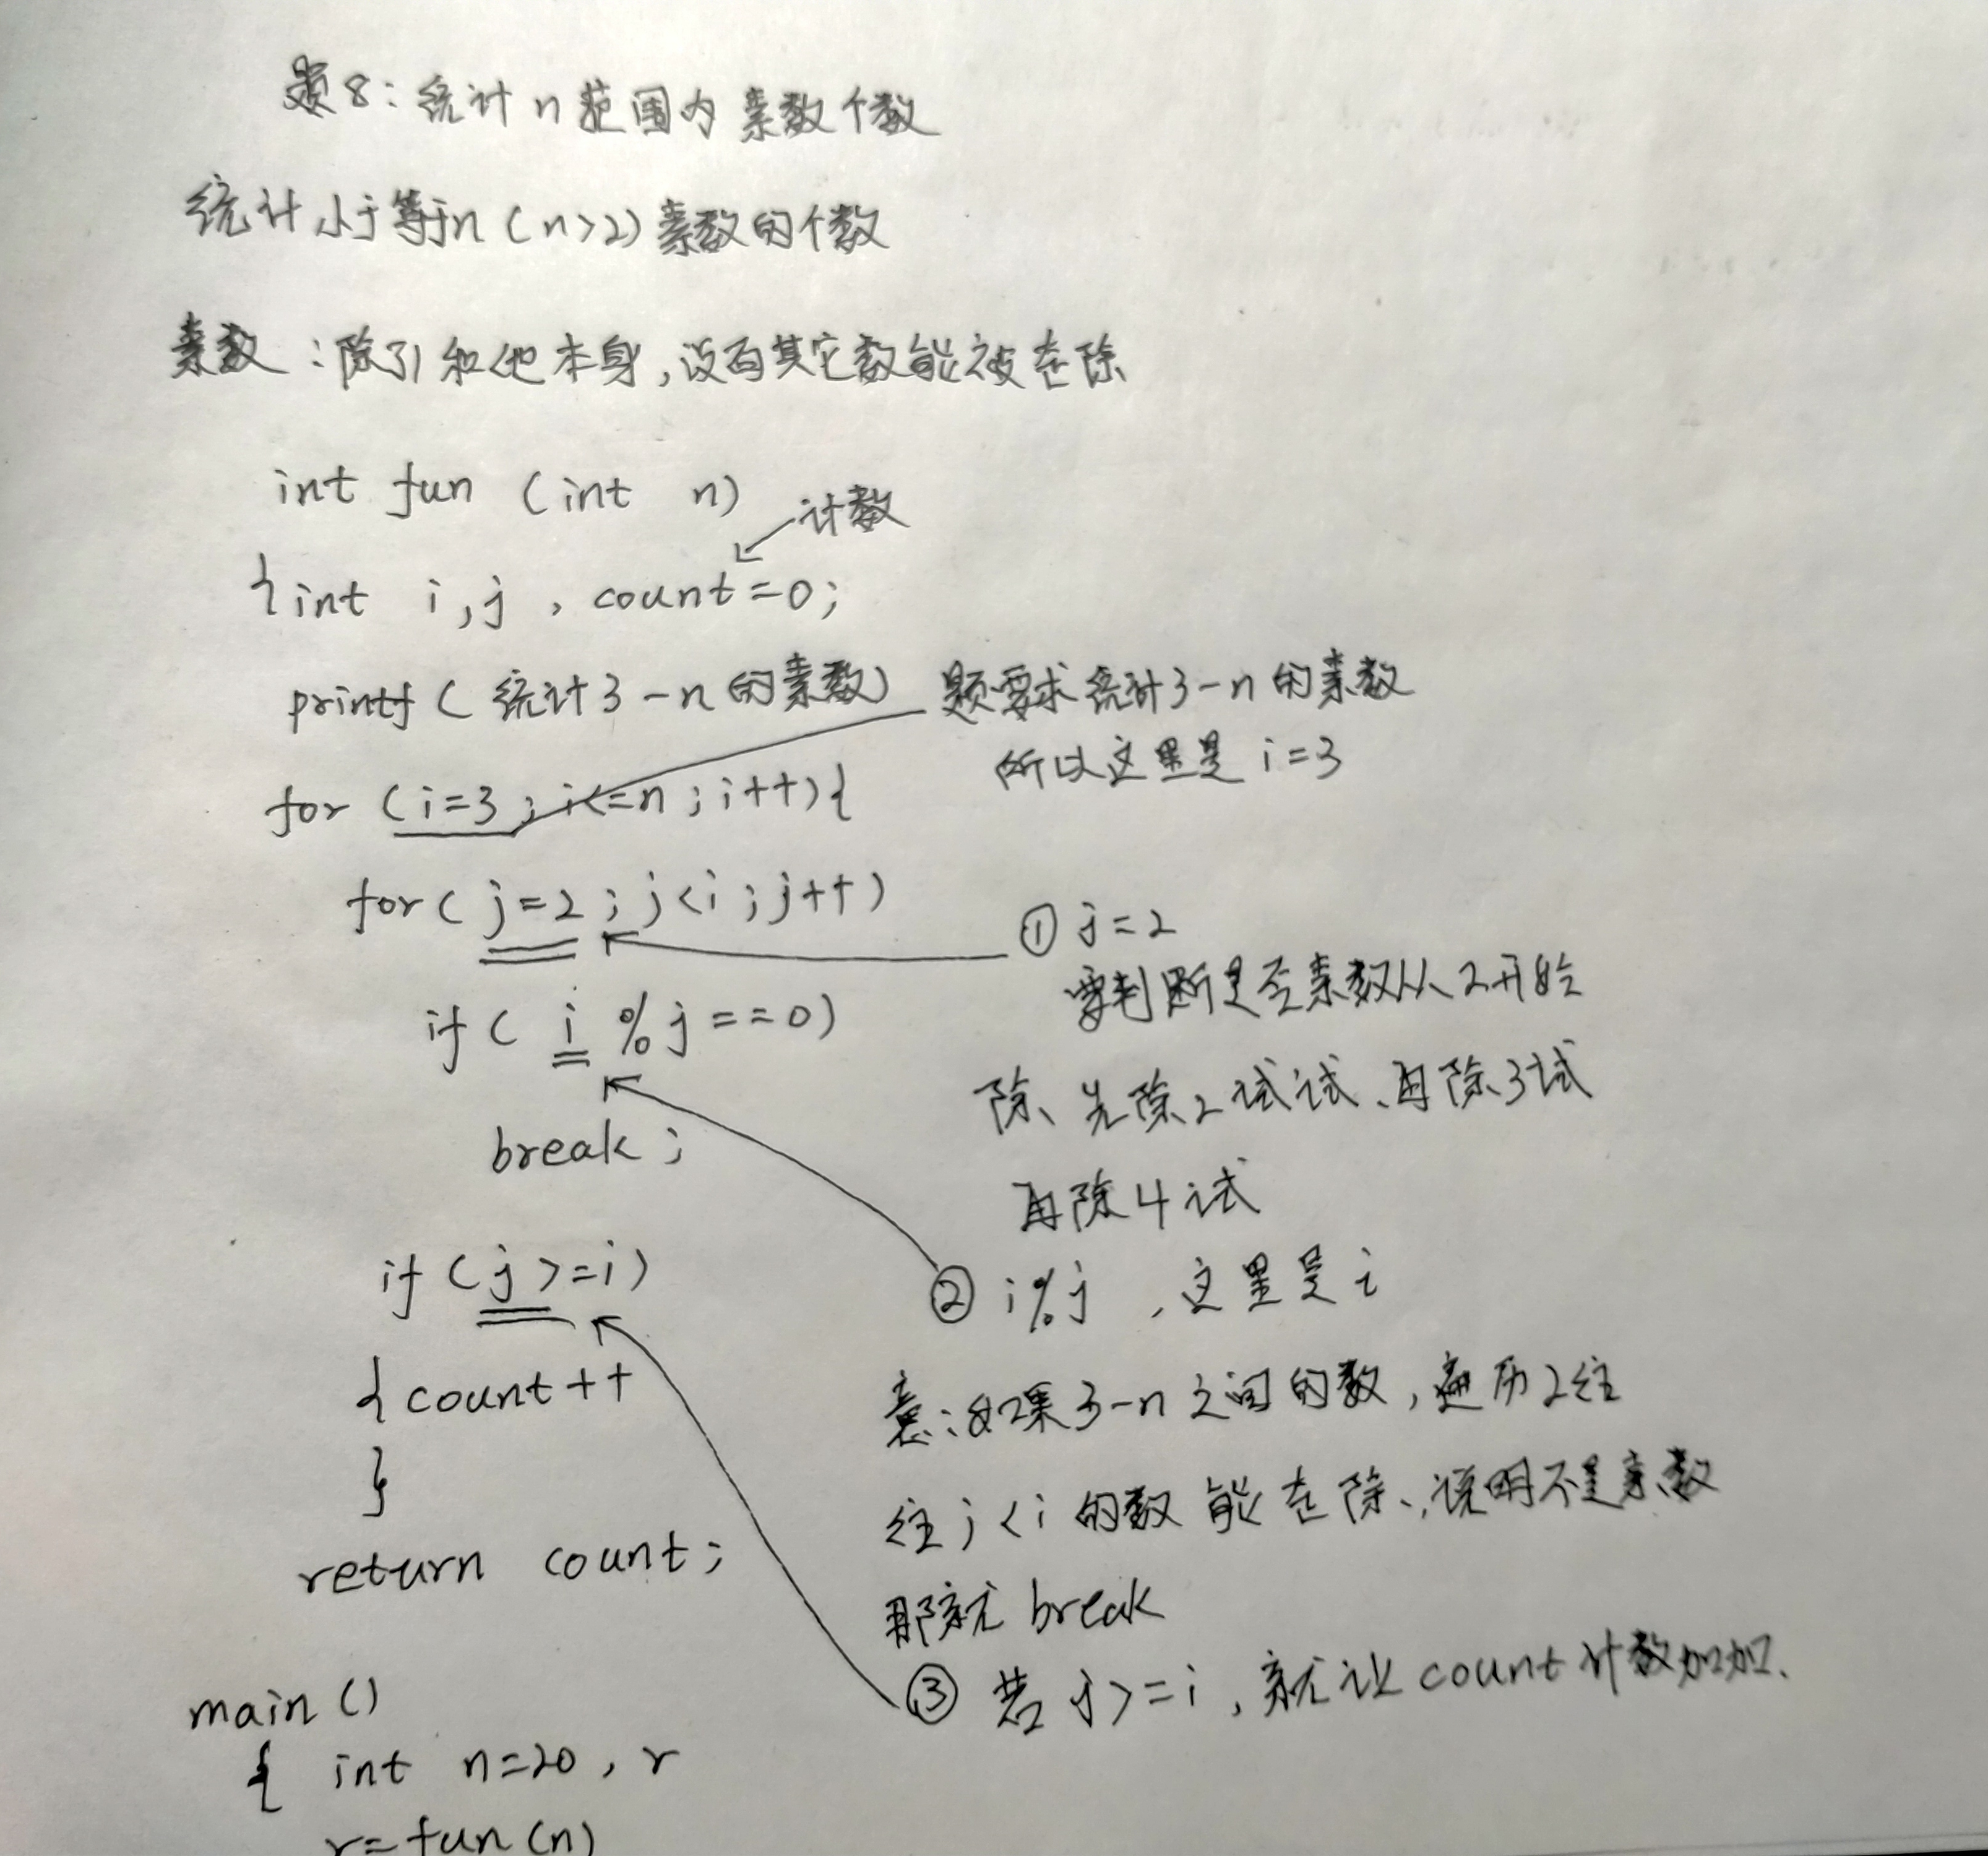 题8：统计n范围内素数个数
统计小于等于n（n>2）素数的个数
素数：除了1和他本身，没有其它数能被整除
int fun (int n)
计数
{int i,j , count=0;
printf ( 统计3-n的素数)
题要求统计3-n的素数
所以这里是 i=3
for (i=3 ; i<=n ; i++){
for ( j=2 ; j<i ; j++)
① j=2
要判断是否素数从2开始
if ( i % j ==0)
除、先除2试试、再除3试
break ;
再除4试
if ( j >=i)
② i%j ，这里是i
{ count++
意：如果3-n之间的数，遍历2往
}
往j<i的数能整除、说明不是素数
return count;
那就break
③ 若j>=i，就让count计数加加.
main ()
{ int n=20 , r
r=fun(n)